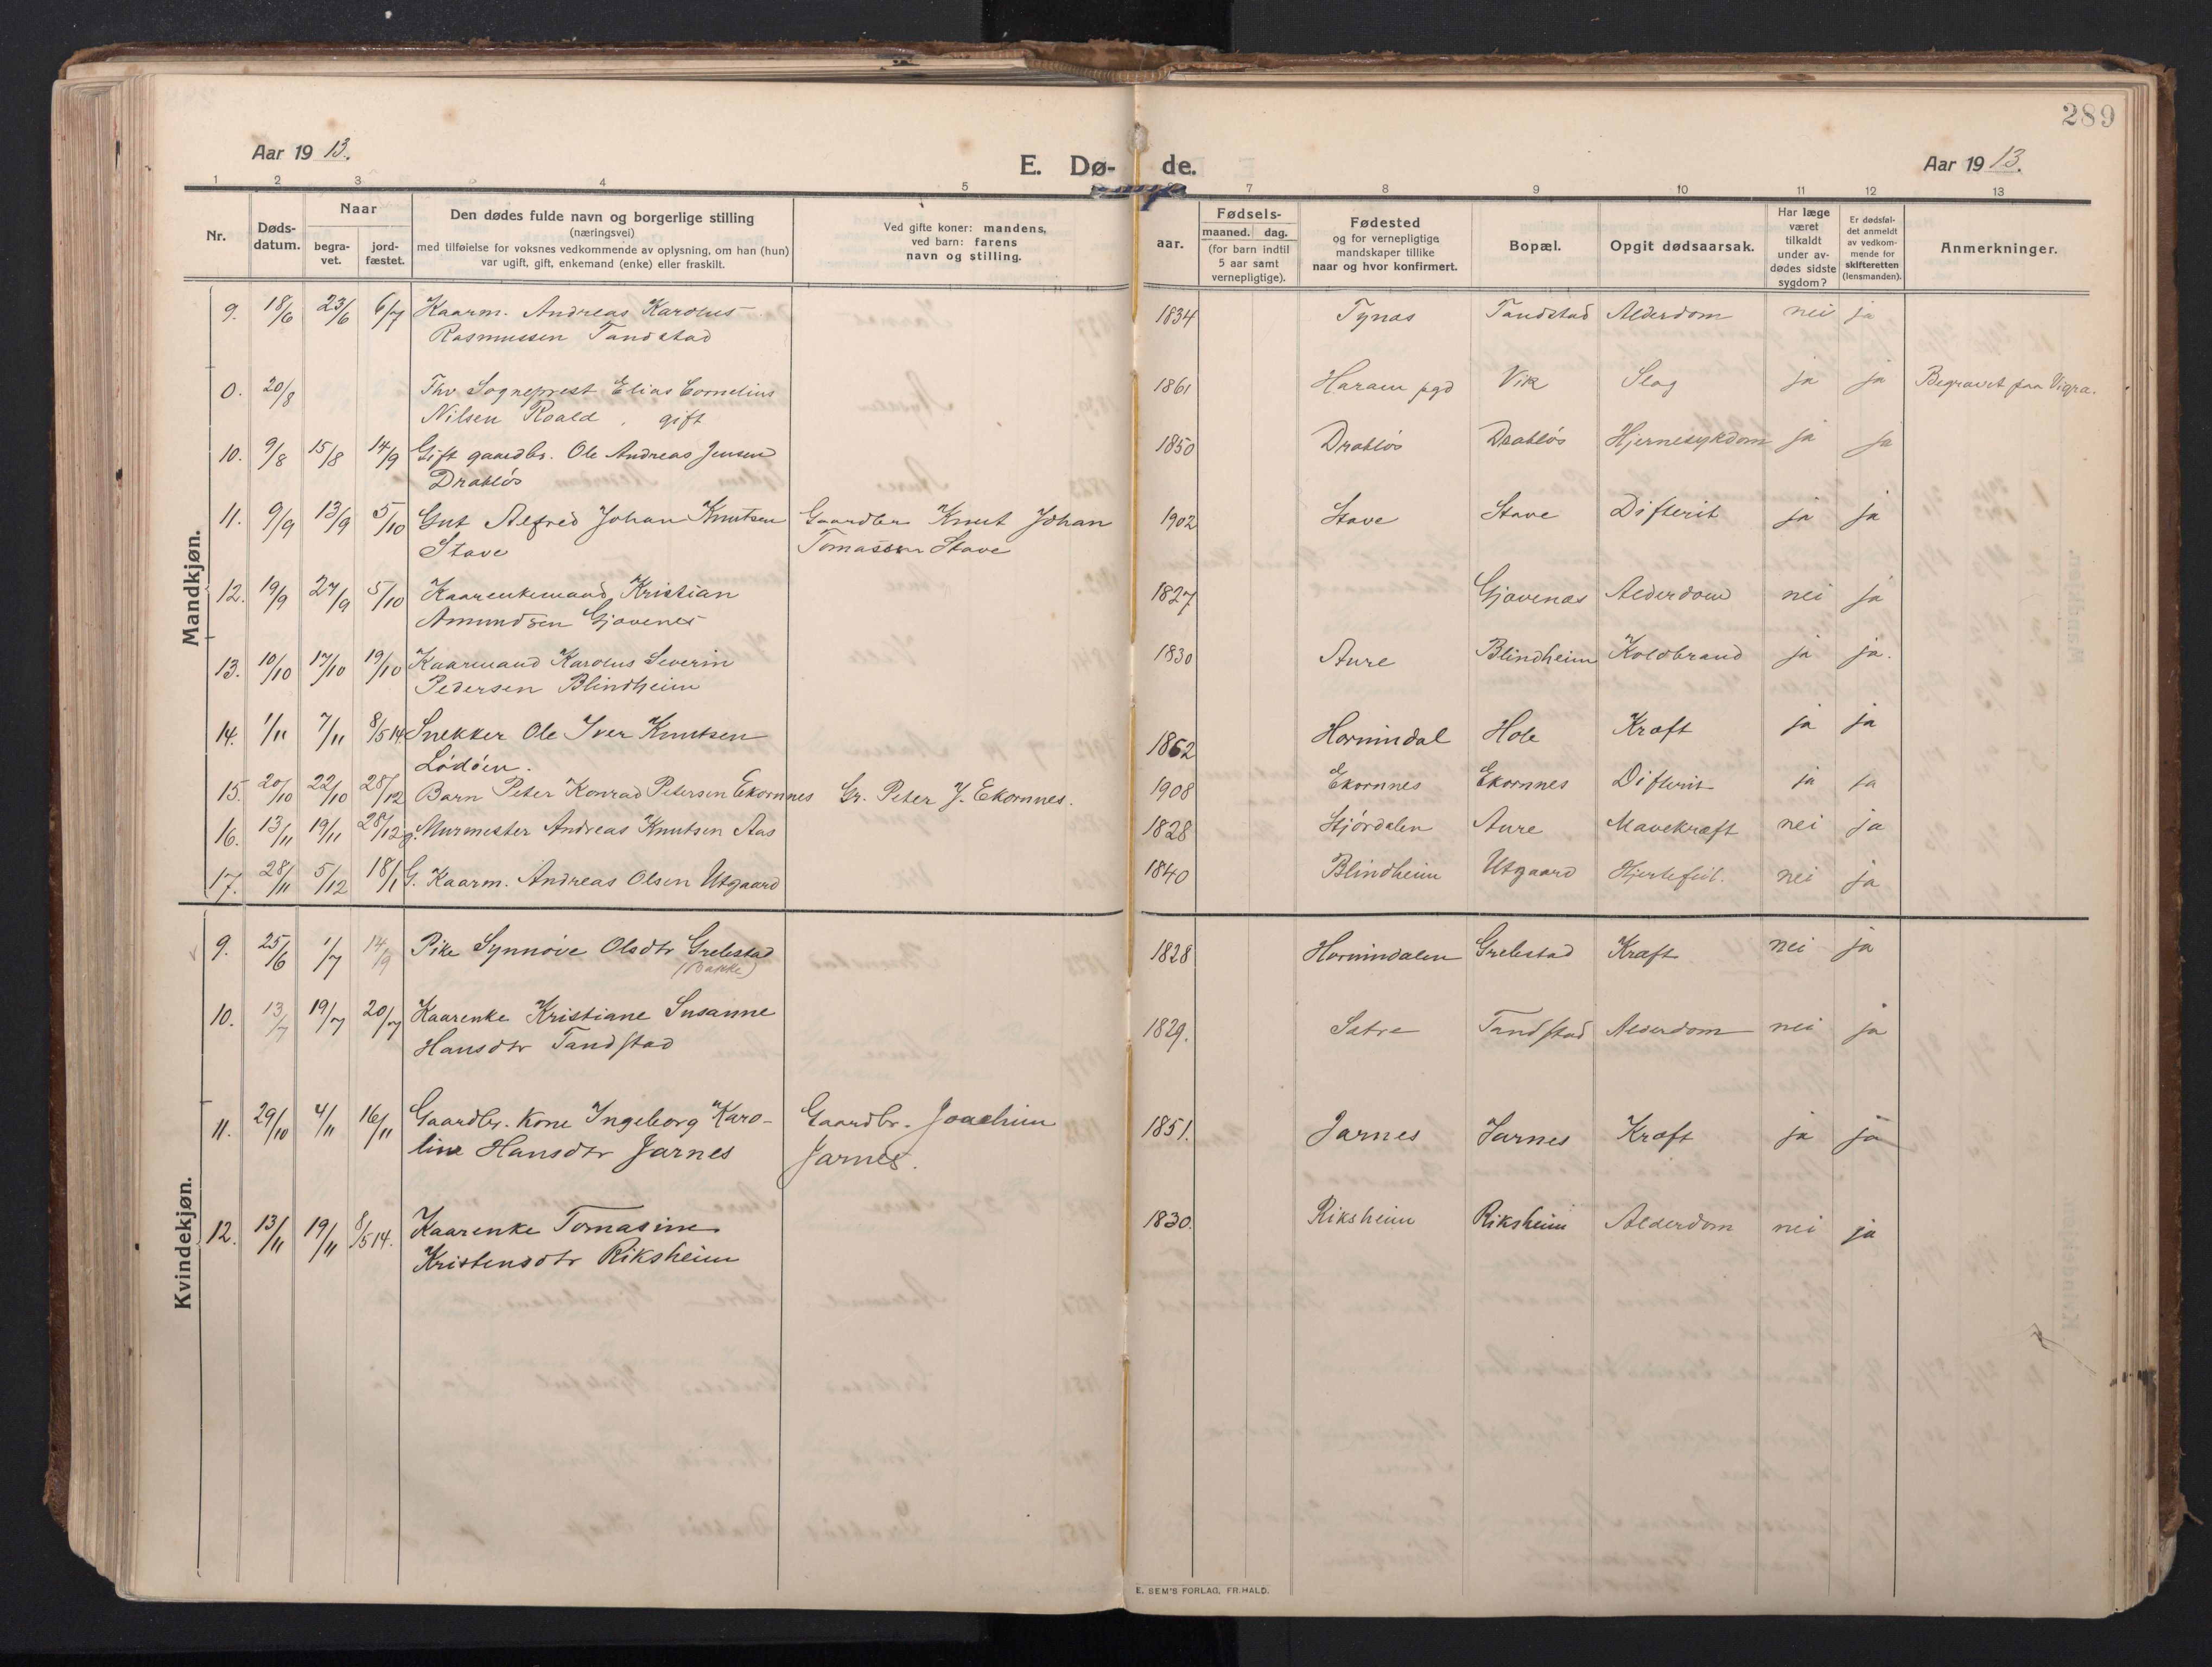 289
Aar 1913.
E. Dø-
de.
Aar 1913.
1 2 3 4 5 7 8 9 10 11 12 13
Nr.
Døds-
datum.
Naar
begra-
vet.
jord-
fæstet.
Den dødes fulde navn og borgerlige stilling
(næringsvei)
med tilføielse for voksnes vedkommende av oplysning, om han (hun)
var ugift, gift, enkemand (enke) eller fraskilt.
Ved gifte koner: mandens,
ved barn: farens
navn og stilling.
aar.
Fødsels-
maaned. dag.
(for barn indtil
5 aar samt
vernepligtige).
Fødested
og for vernepligtige
mandskaper tillike
naar og hvor konfirmert.
Bopæl.
Opgit dødsaarsak.
Har læge
været
tilkaldt
under av-
dødes sidste
sygdom?
Er dødsfal-
det anmeldt
av vedkom-
mende for
skifteretten
(lensmanden).
Anmerkninger.
Mandkjøn.
9. 18/6 23/6 6/7 Kaarm. Andreas Karolus 1834 Tynas Tandstad Alderdom nei ja
Rasmussen Tandstad
0. 20/8 Thv Sogneprest Elias Cornelius 1861 Haram pgd Vik Slag ja ja Begravet paa Vigra.
Nilsen Roald, gift
10. 9/8 15/8 14/9 Gift gaardbr. Ole Andreas Jensen 1850 Drabløs Drabløs Hjernesykdom ja ja
Drabløs
11. 9/9 13/9 5/10 Gut Alfred Johan Knutsen Gaardbr Knut Johan 1902 Stave Stave Difterit ja ja
Stave Tomassen Stave
12. 19/9 27/9 5/10 Kaarenkemand Kristian 1827 Gjævenæs Alderdom nei ja
Amundsen Gjævenes
13. 10/10 17/10 19/10 Kaarmand Karolus Severin 1830 Aure Blindheim Koldbrand ja ja.
Pedersen Blindheim
14. 1/11 7/11 8/5 14 Snekker Ole Iver Knutsen 1862 Hornindal Hole Kræft ja ja
Lødøen.
15. 20/10 22/10 28/12 Barn Peter Konrad Petersen Ekornnes Gr. Peter J. Ekornnes. 1908 Ekornnes Ekornnes Difterit ja ja
16. 13/11 19/11 28/12 g. Murmester Andreas Knutsen Aas 1828 Hjørdalen Aure Mavekræft nei ja
17. 28/11 5/12 18/1 G. Kaarm. Andreas Olsen Utgaard 1840 Blindheim Utgaard Hjertefeil. nei ja
Kvindekjøn.
9. 25/6 1/7 14/9 Pike Synnøve Olsdtr Grebstad 1828 Hornindalen Grebstad Kræft nei ja
(Bakke)
10. 13/7 19/7 20/7 Kaarenke Kristiane Susanne 1829. Satre Tandstad Alderdom nei ja
Hansdtr Tandstad
11. 29/10 4/11 16/11 Gaardbr. kone Ingeborg Karo- Gaardbr. Joachim 1851. Jarnes Jarnes Kræft ja ja
line Hansdtr Jarnes Jarnes.
12. 13/11 19/11 8/5 14. Kaarenke Tomasine 1830. Riksheim Riksheim Alderdom nei ja
Kristensdtr Riksheim
E. SEM'S FORLAG, FR.HALD.